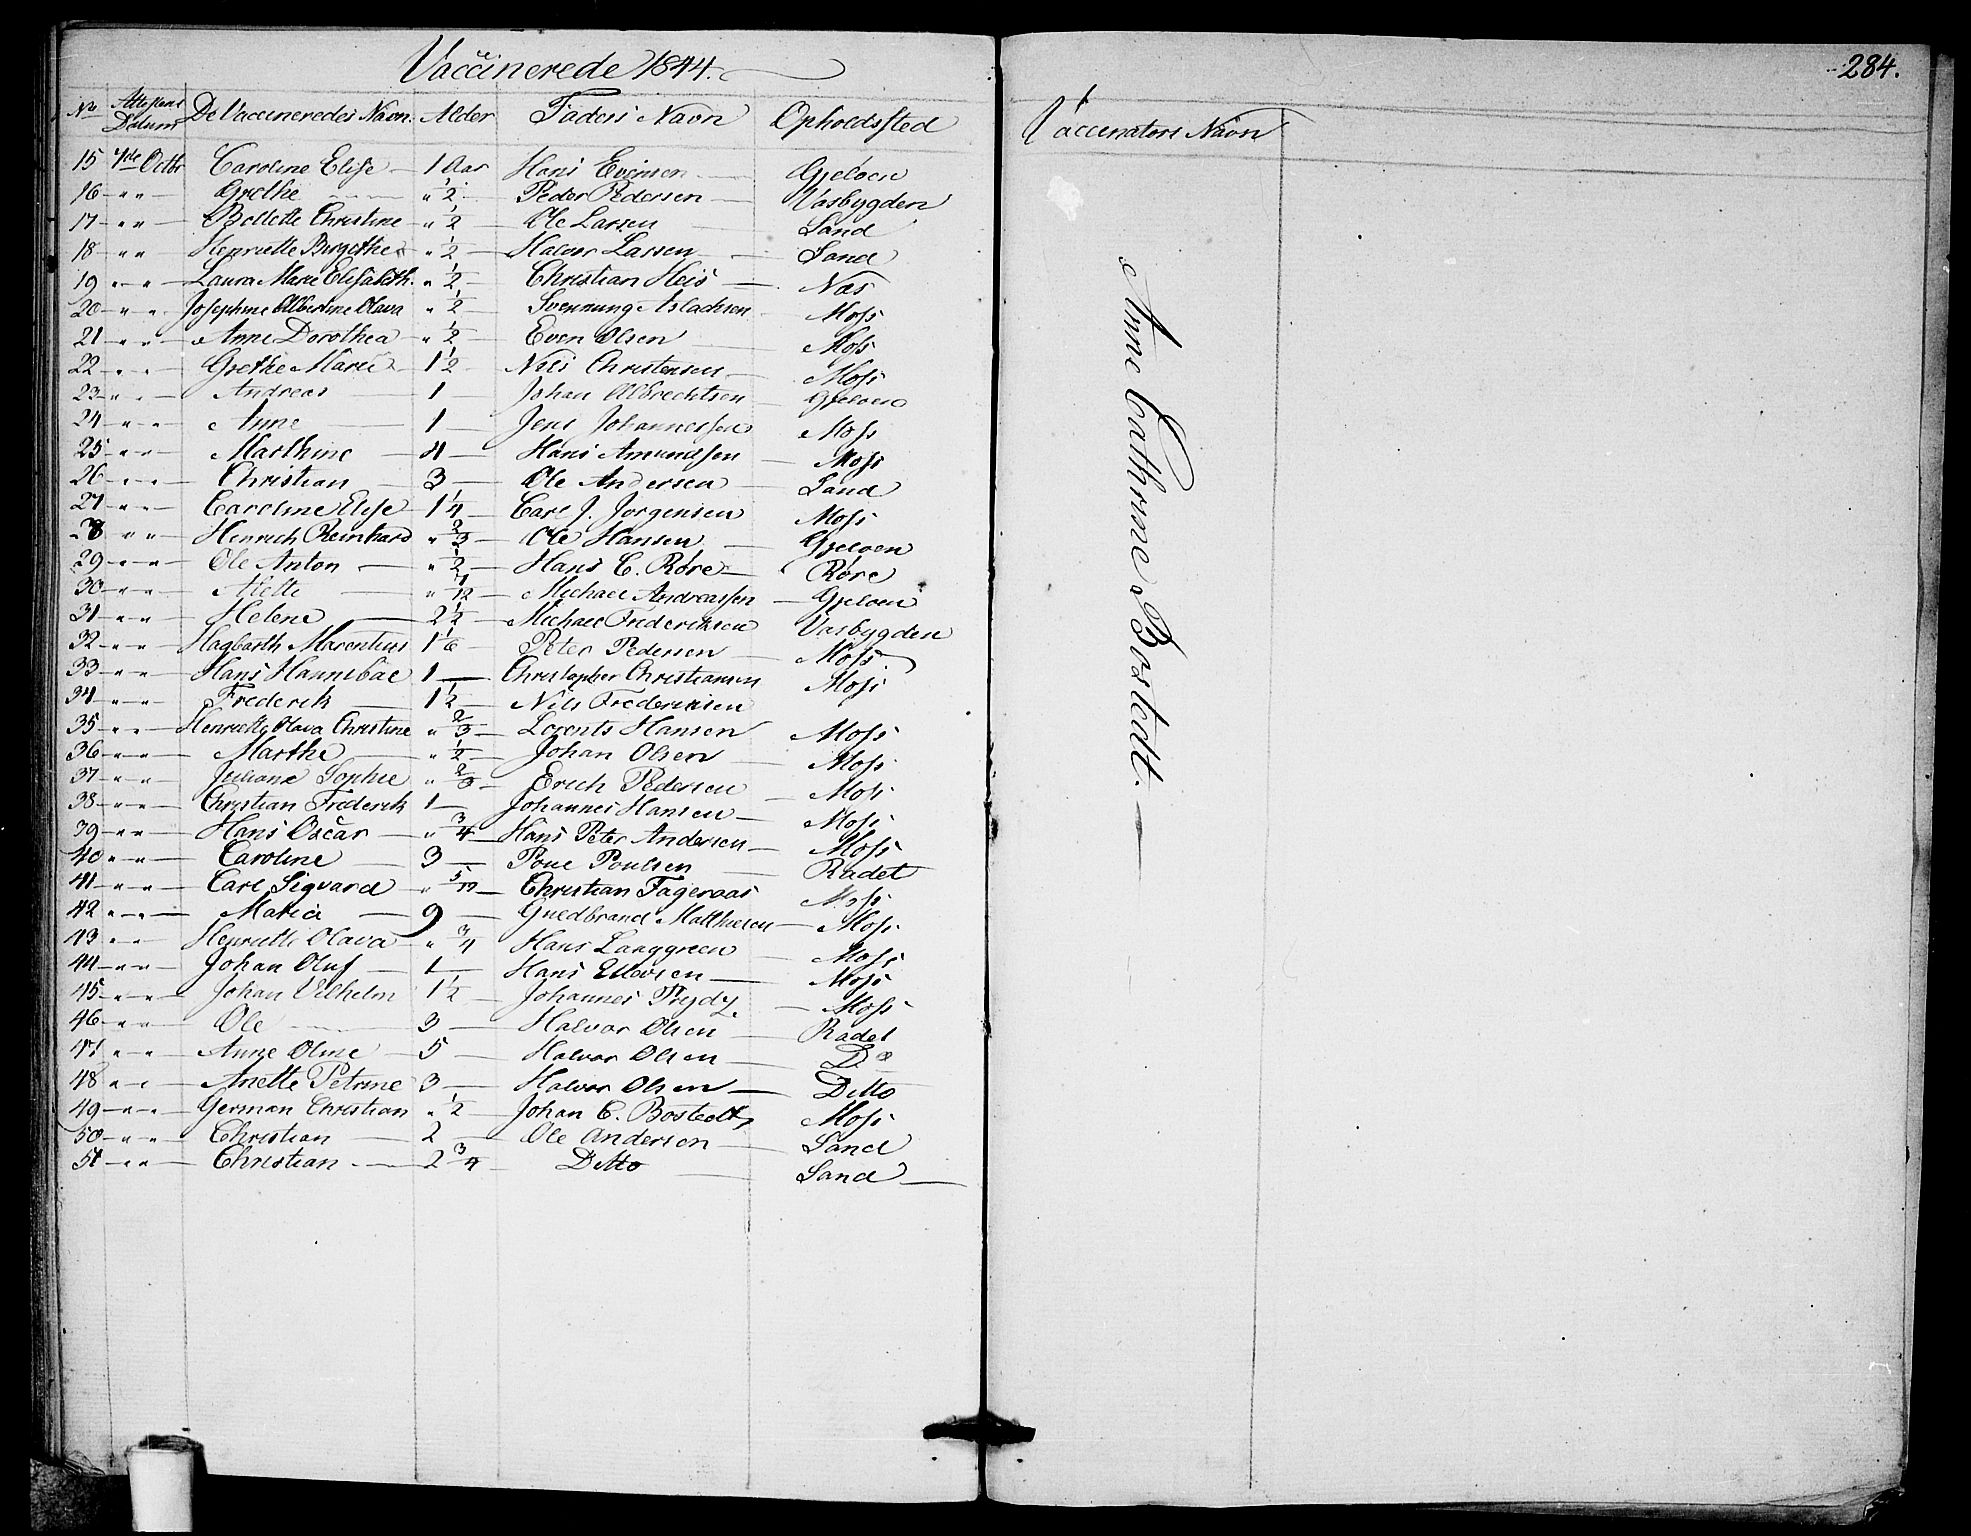 Vaccinerede 1844.
No Attestens Datum De Vaccineredes Navn. Alder Faders Navn Opholdssted
15 7de Octbr Caroline Elise 1 Aar Hans Evensen Gjeloen
16 " " Grethe " 1/2 Peder Pedersen Vasbygden
17 " " Bollette Christine " 1/2 Ole Larsen Sand
18 " " Henriette Birgethe " 1/2 Halvor Lassen Sand
19 " " Laura Marie Elisabeth " 1/2 Christian Heis Næs
20 " " Josephine Albertine Olava " 1/2 Svennung Aslachsen Moss
21 " " Anne Dorothea " 1/2 Even Olsen Moss
22 " " Grethe Marie 1 1/2 Nils Christensen Moss
23 " " Andreas 1 Johan Albrechtsen Gjeloen
24 " " Anne 1 Jens Johannessen Moss
25 " " Marthine 4 Hans Amundsen Moss
26 " " Christian 3 Ole Andersen Sand
27 " " Caroline Elise 1 1/4 Carl J. Jørgensen Moss
28 " " Henrich Reinhard " 2/3 Ole Hansen Gjeloen
29 " " Ole Anton " 1/2 Hans C. Røre Røre
30 " " Mette " 7/12 Michael Andreassen Gjeloen
31 " " Helene 2 1/2 Michael Frederiksen Vasbygden
32 " " Hagbarth Marentius 1 1/6 Peter Pedersen Moss
33 " " Hans Hannibal 1 Christopher Christiansen Moss
34 " " Frederik 1 1/2 Nils Frederiksen
35 " " Henriette Olava Christine " 2/3 Lorents Hansen Moss
36 " " Marthe " 1/2 Johan Olsen Moss
37 " " Juliane Sophie " 2/3 Erich Pedersen Moss
38 " " Christian Frederik 1 Johannes Hansen Moss
39 " " Hans Oscar " 3/4 Hans Peter Andersen Moss
40 " " Caroline 3 Poul Poulsen Radet
41 " " Carl Sigvard " 5/12 Christian Fageraas Moss
42 " " Maria 9 Guldbrand Mathiesen Moss
43 " " Henriette Olava " 3/4 Hans Langgreen Moss
44 " " Johan Oluf 1 Hans Ellevsen Moss
45 " " Johan Vilhelm 1 1/2 Johannes Prydz Moss
46 " " Ole 3 Halvor Olsen Radet
47 " " Anne Oline 5 Halvor Olsen Do
48 " " Anette Petrine 3 Halvor Olsen Ditto
49 " " German Christian " 1/2 Johan C. Bostedt Moss
50 " " Christian 2 Ole Andersen Sand
51 " " Christian 2 3/4 Ditto Sand
284.
Vaccinatørs Navn
Anne Cathrine Bostedt.